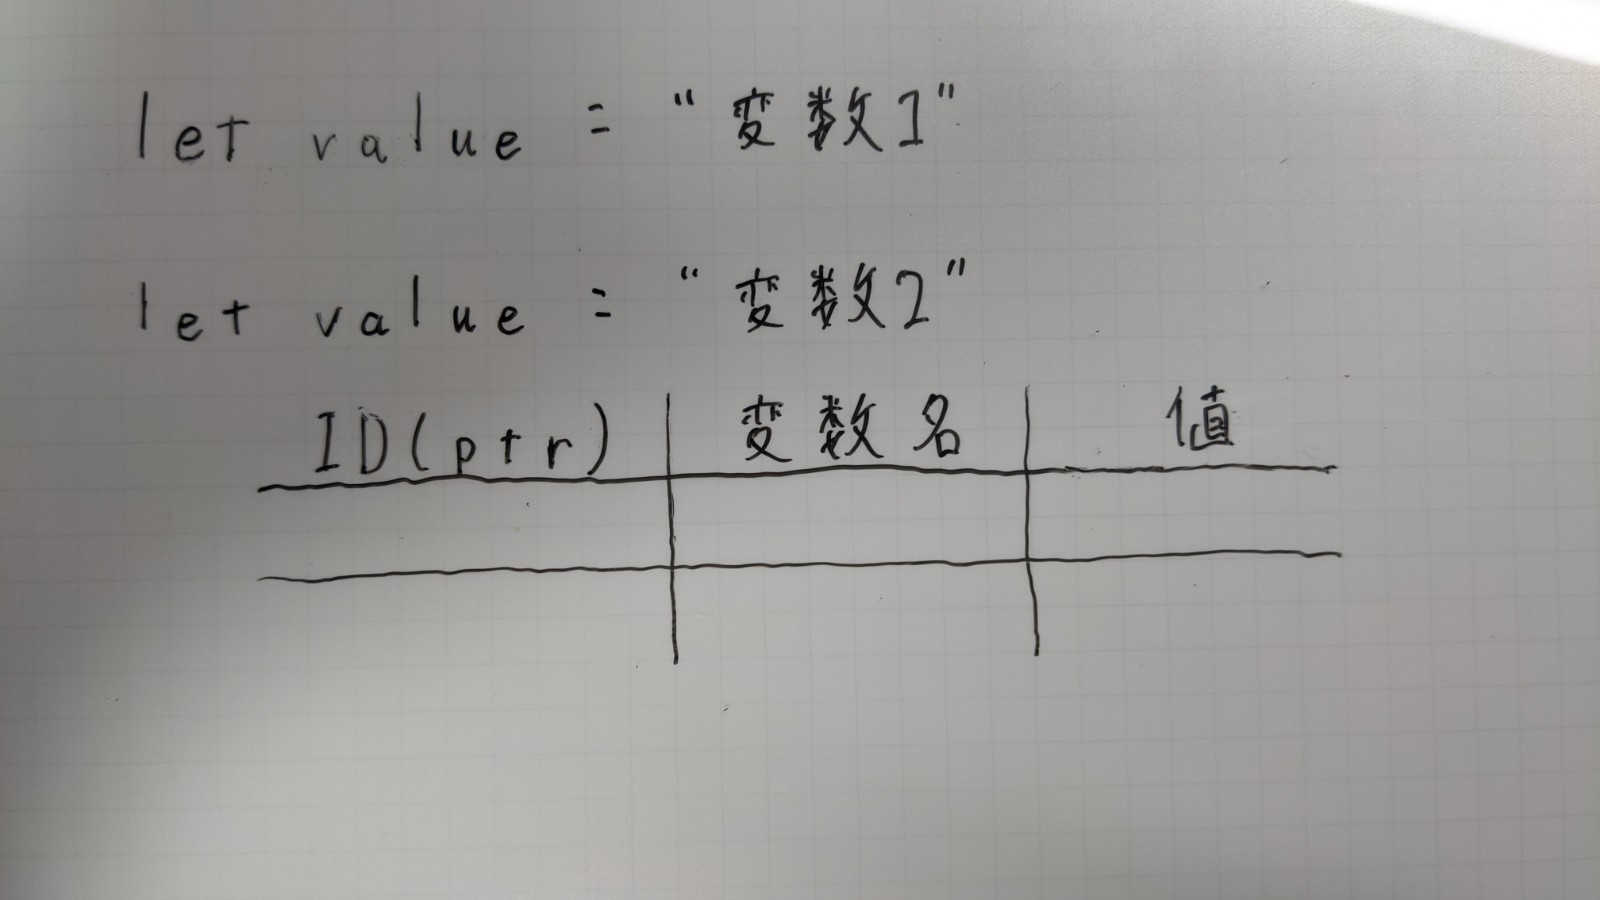 let value = "変数1"
let value = "変数2"
ID(ptr) 変数名 値